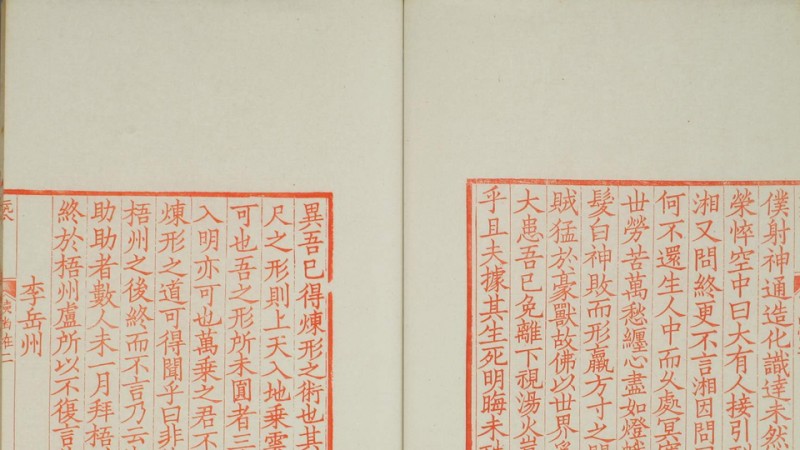 僕射神通造化識達未然
榮悴空中曰大有人接引到
湘又問終更不言湘因問
何不還生人中而久處冥
世勞苦萬愁纏心盡如燈蛾
髮白神敗而形羸方寸之間
賊猛於豪獸故佛以世界為
大患吾已免離下視湯火豈
乎且夫據其生死明晦未殊
異吾已得煉形之術也其
尺之形則上天入地乘雲
可也吾之形所未圓者三
入明亦可也萬乘之君不
煉形之道可得聞乎曰非
梧州之後終而不言乃云
助助者數人未一月拜梧
終於梧州盧所以不復言
李岳州